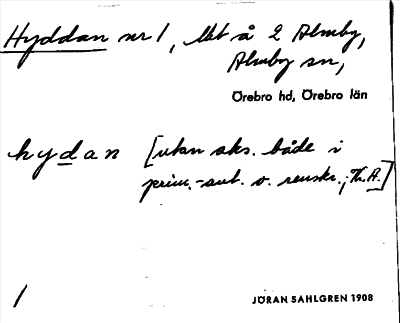 Hyddan nr 1, lht å 2 Almby,
Almby sn,
Örebro hd, Örebro län
hydan [utan aks. både i
prim.-ant. o. renskr.; Th.A.]
/
JÖRAN SAHLGREN 1908